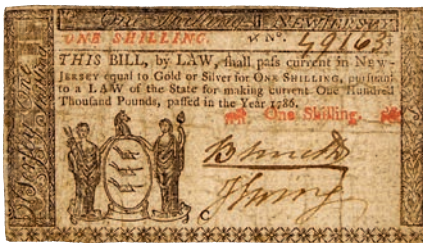 One Shilling NEW-JERSEY
ONE SHILLING. No. 49163
THIS BILL, by LAW, ſhall paſs current in NEW-
JERSEY equal to Gold or Silver for ONE SHILLING, purſuant
to a LAW of the State for making current One Hundred
Thouſand Pounds, paſſed in the Year 1786.
One Shilling.